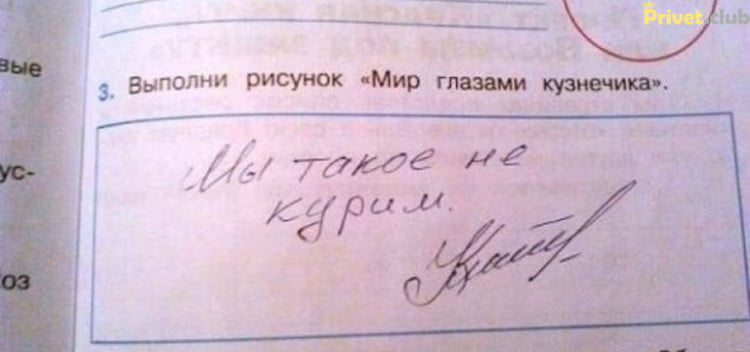 Privet.club
вые
3. Выполни рисунок «Мир глазами кузнечика».
Мы такое не
курим.
ус-
оз